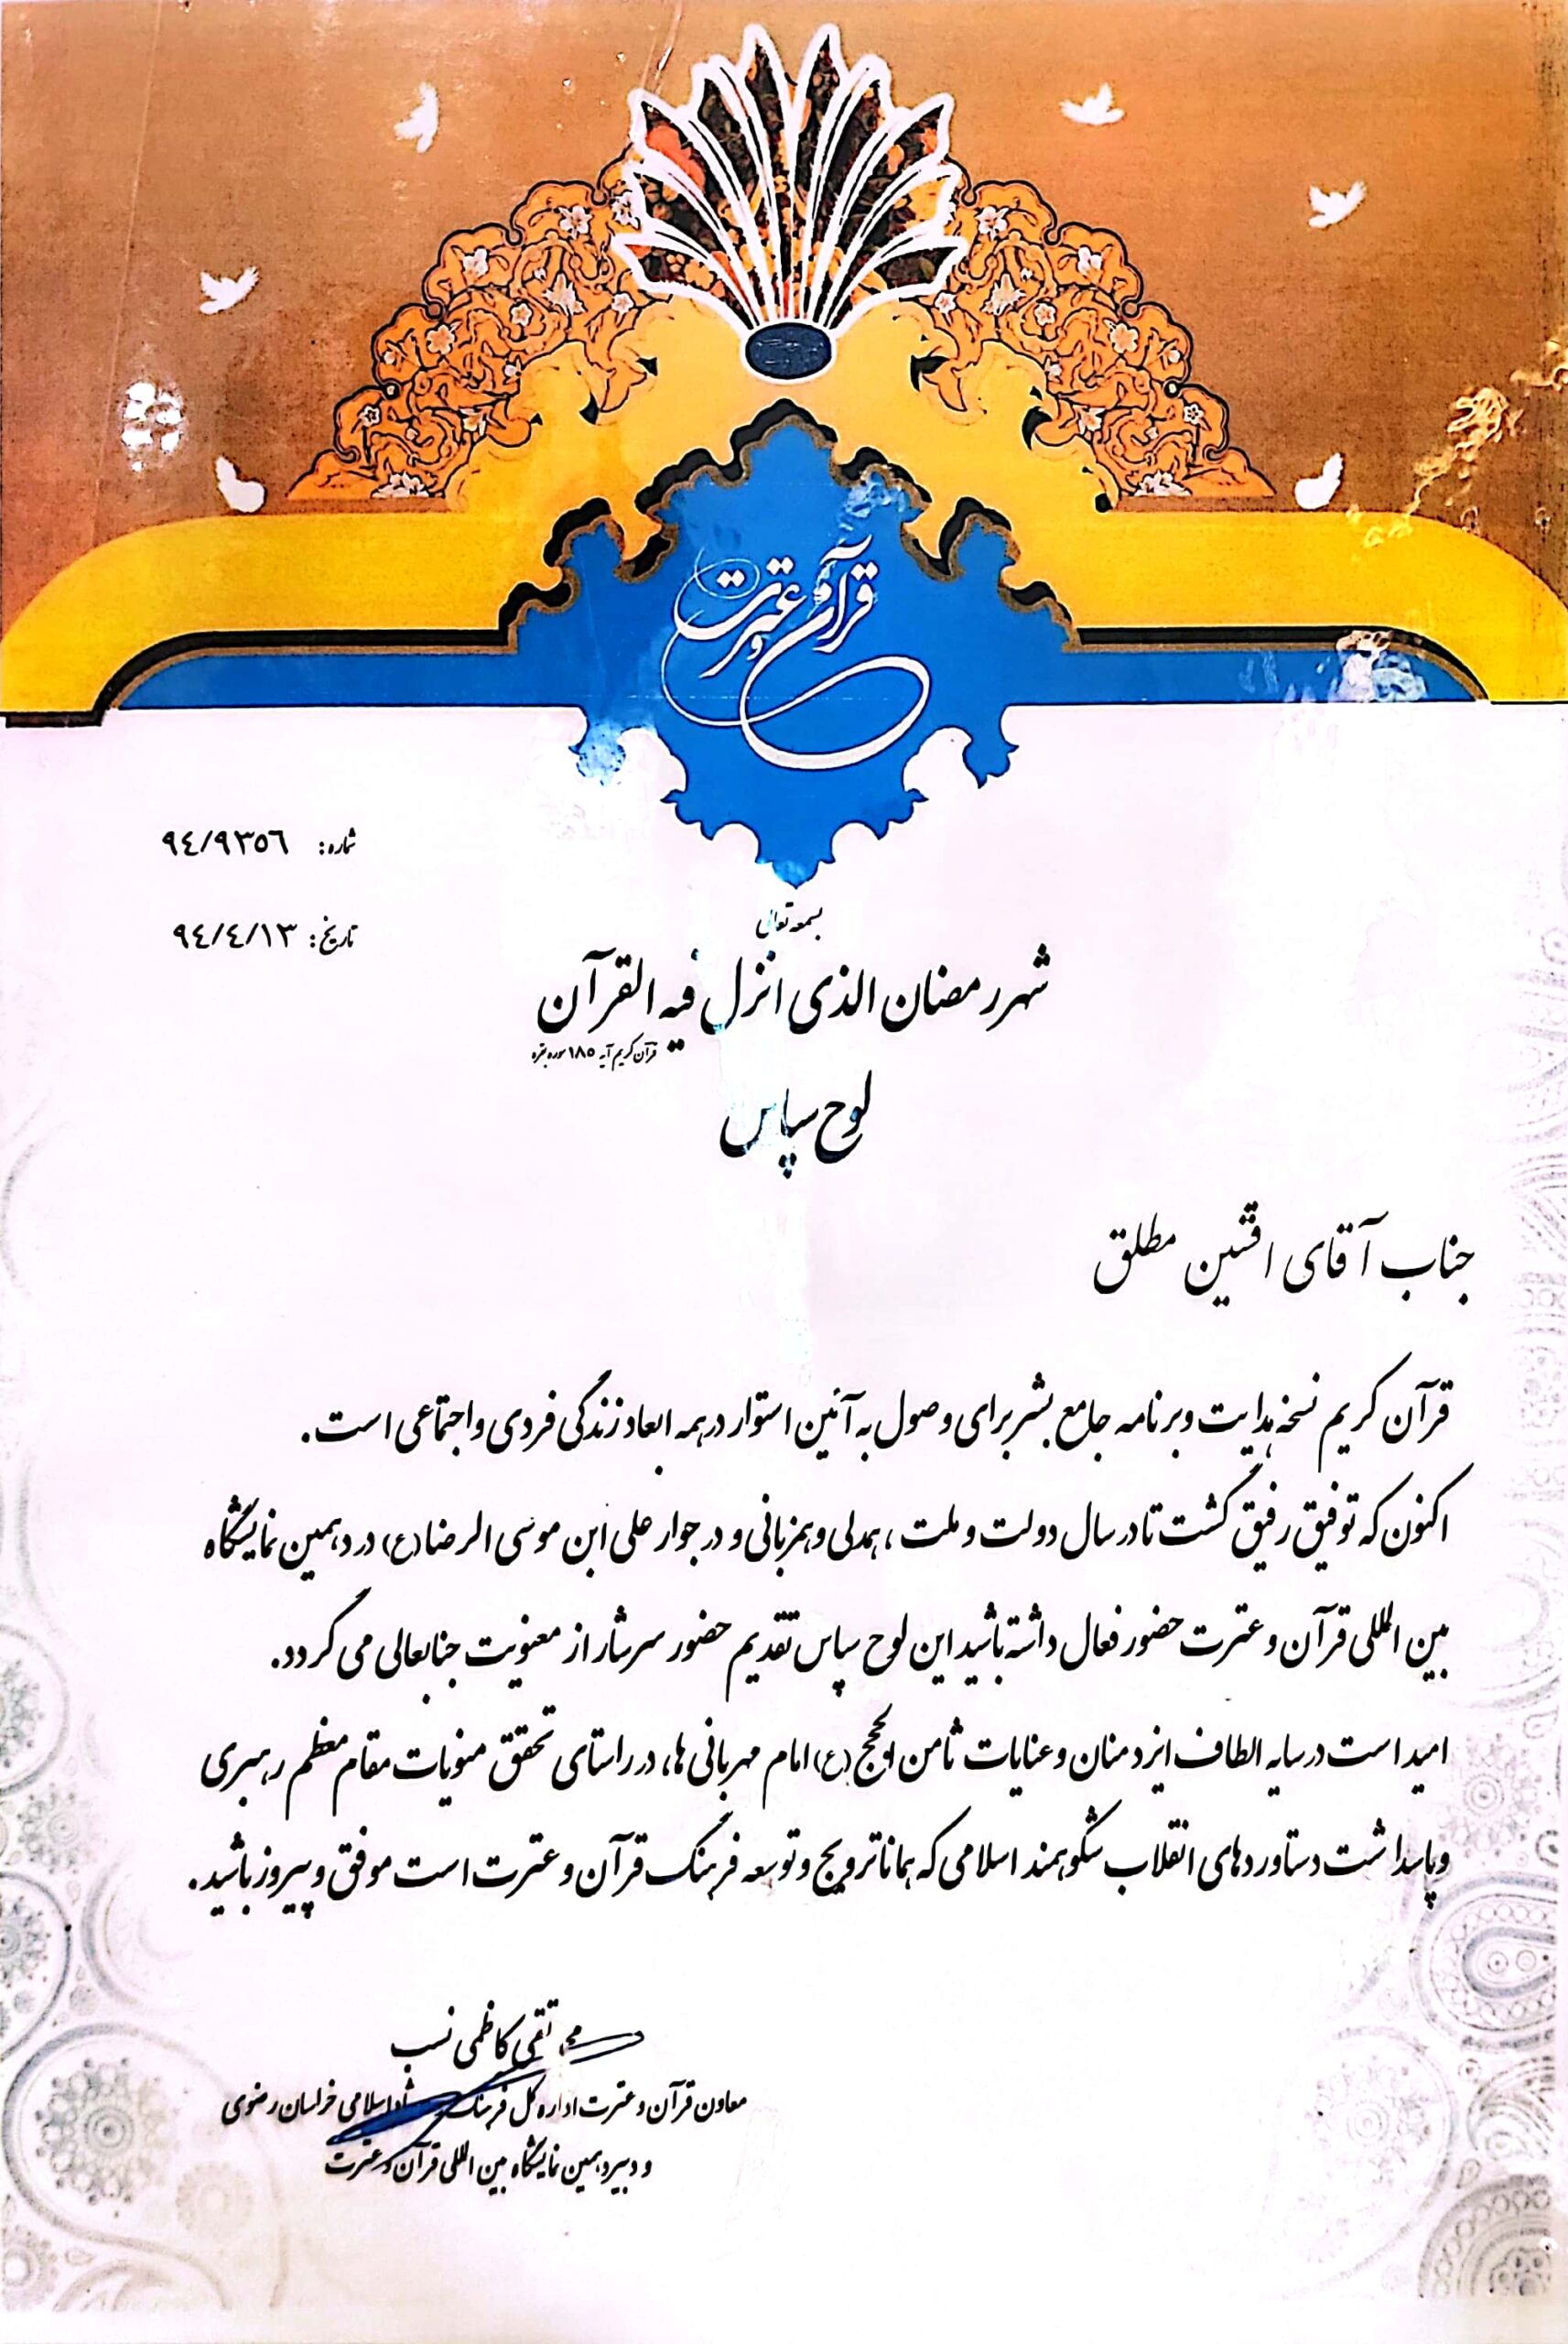 قرآن و عترت
شماره: ۹٤/۹۳٥٦
تاریخ: ۹٤/٤/۱۳
بسمه تعالی
شهر رمضان الذی انزل فیه القرآن
قرآن کریم آیه ۱۸۵ سوره بقره
لوح سپاس
جناب آقای افشین مطلق
قرآن کریم نسخه هدایت و برنامه جامع بشر برای وصول به آئین استوار در همه ابعاد زندگی فردی و اجتماعی است.
اکنون که توفیق رفیق گشت تا در سال دولت و ملت، همدلی و همزبانی و در جوار علی ابن موسی الرضا(ع) در دهمین نمایشگاه
بین المللی قرآن و عترت حضور فعال داشته باشید این لوح سپاس تقدیم حضور سرشار از معنویت جنابعالی می گردد.
امید است در سایه الطاف ایزد منان و عنایات ثامن الحجج(ع) امام مهربانی ها، در راستای تحقق منویات مقام معظم رهبری
و پاسداشت دستاوردهای انقلاب شکوهمند اسلامی که همانا ترویج و توسعه فرهنگ قرآن و عترت است موفق و پیروز باشید.
تقی کاظمی نسب
معاون قرآن و عترت اداره کل فرهنگ اسلامی خراسان رضوی
و دبیر دهمین نمایشگاه بین المللی قرآن و عترت